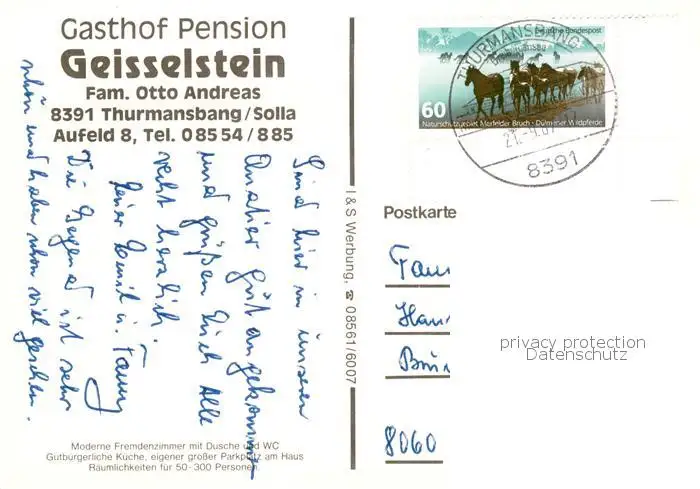 Gasthof Pension
Geisselstein
Fam. Otto Andreas
8391 Thurmansbang/Solla
Aufeld 8, Tel. 08554/885
Sind hier in unserem
Quatier gut angekommen
und grüßen Euch Alle
recht herzlich.
Familie
Die Gegend ist sehr
schön und haben schon viel gesehen.
Moderne Fremdenzimmer mit Dusche und WC
Gutbürgerliche Küche, eigener großer Parkplatz am Haus
Räumlichkeiten für 50-300 Personen
I & S Werbung, ☎ 08561/6007
Deutsche Bundespost
60
Naturschutzgebiet Merfelder Bruch · Dülmener Wildpferde
THURMANSBANG
21.-9.87
8391
Postkarte
Fam
Han
8060
privacy protection
Datenschutz